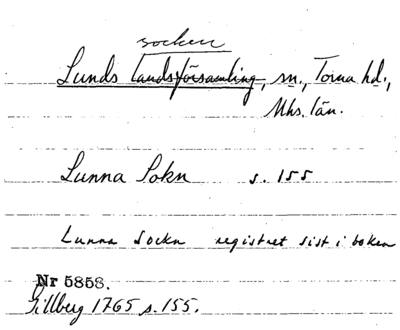 socken
Lunds landsförsamling, sn., Torna hd.,
Mhs. län.
Lunna Sokn s. 155
Lunna Sockn registret sist i boken
Nr 5858.
Gillberg 1765 s. 155.